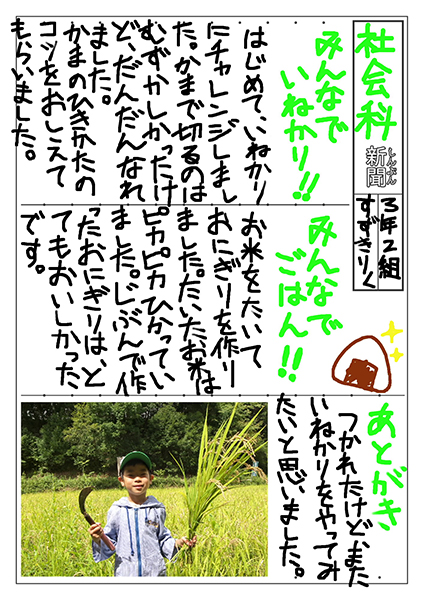 社会科
新聞
しんぶん
3年2組
すずきりく
みんなで
いねかり!!
はじめて、いねかり
にチャレンジしまし
た。かまで切るのは
むずかしかったけ
ど、だんだんなれ
ました。
かまのひきかたの
コツをおしえて
もらいました。
みんなで
ごはん!!
お米をたいて
おにぎりを作り
ました。たいたお米は
ピカピカひかってい
ました。じぶんで作
ったおにぎりは、と
てもおいしかった
です。
あとがき
つかれたけど、また
いねかりをやってみ
たいと思いました。